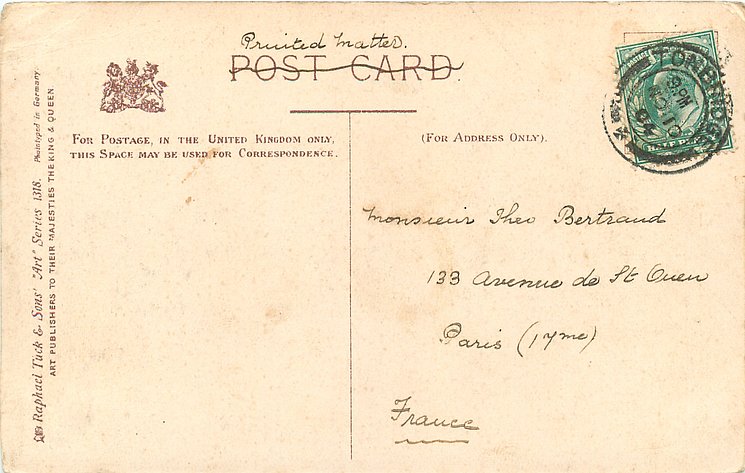 Printed Matter.
POST CARD.
FOR POSTAGE, IN THE UNITED KINGDOM ONLY,
THIS SPACE MAY BE USED FOR CORRESPONDENCE.
(FOR ADDRESS ONLY).
TONBRIDGE
Monsieur Theo Bertrand
133 Avenue de St Ouen
Paris (17me)
France
Raphael Tuck & Sons' "Art" Series 1318. Phototyped in Germany.
ART PUBLISHERS TO THEIR MAJESTIES THE KING & QUEEN.